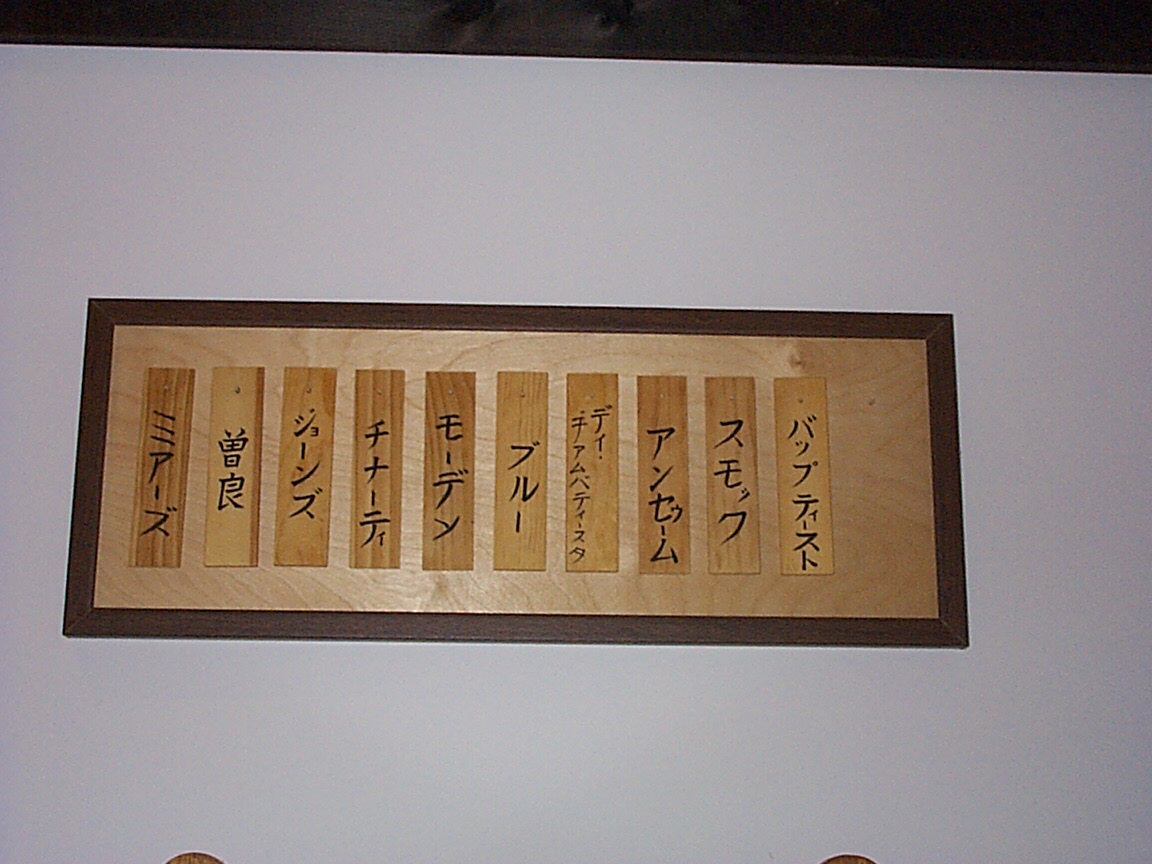 バップティースト
スモック
アンセゥーム
ディ・
チァムバティースタ
ブルー
モーデン
チナーティ
ジョーンズ
曽良
ミアーズ